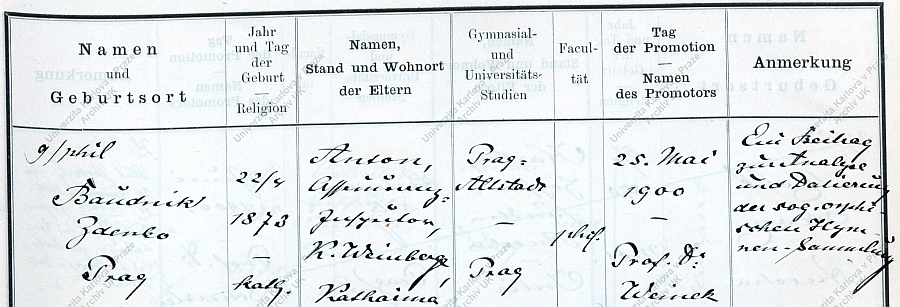 Namen
und
Geburtsort
Jahr
und Tag
der
Geburt
—
Religion
Namen,
Stand und Wohnort
der Eltern
Gymnasial-
und
Universitäts-
Studien
Facul-
tät
Tag
der Promotion
—
Namen
des Promotors
Anmerkung
9/phil
Baudnik
Zdenko
Prag
22/4
1873
—
kath.
Anton,
Assecuranz-
Inspector,
K. Weinberge,
Katharina
Prag-
Altstadt
—
Prag
phil.
25. Mai
1900
—
Prof. Dr
Weinek
Ein Beitrag
zur Analyse
und Datierung
der sog. orphi-
schen Hym-
nen-Sammlung
Univerzita Karlova v Praze
Archiv UK